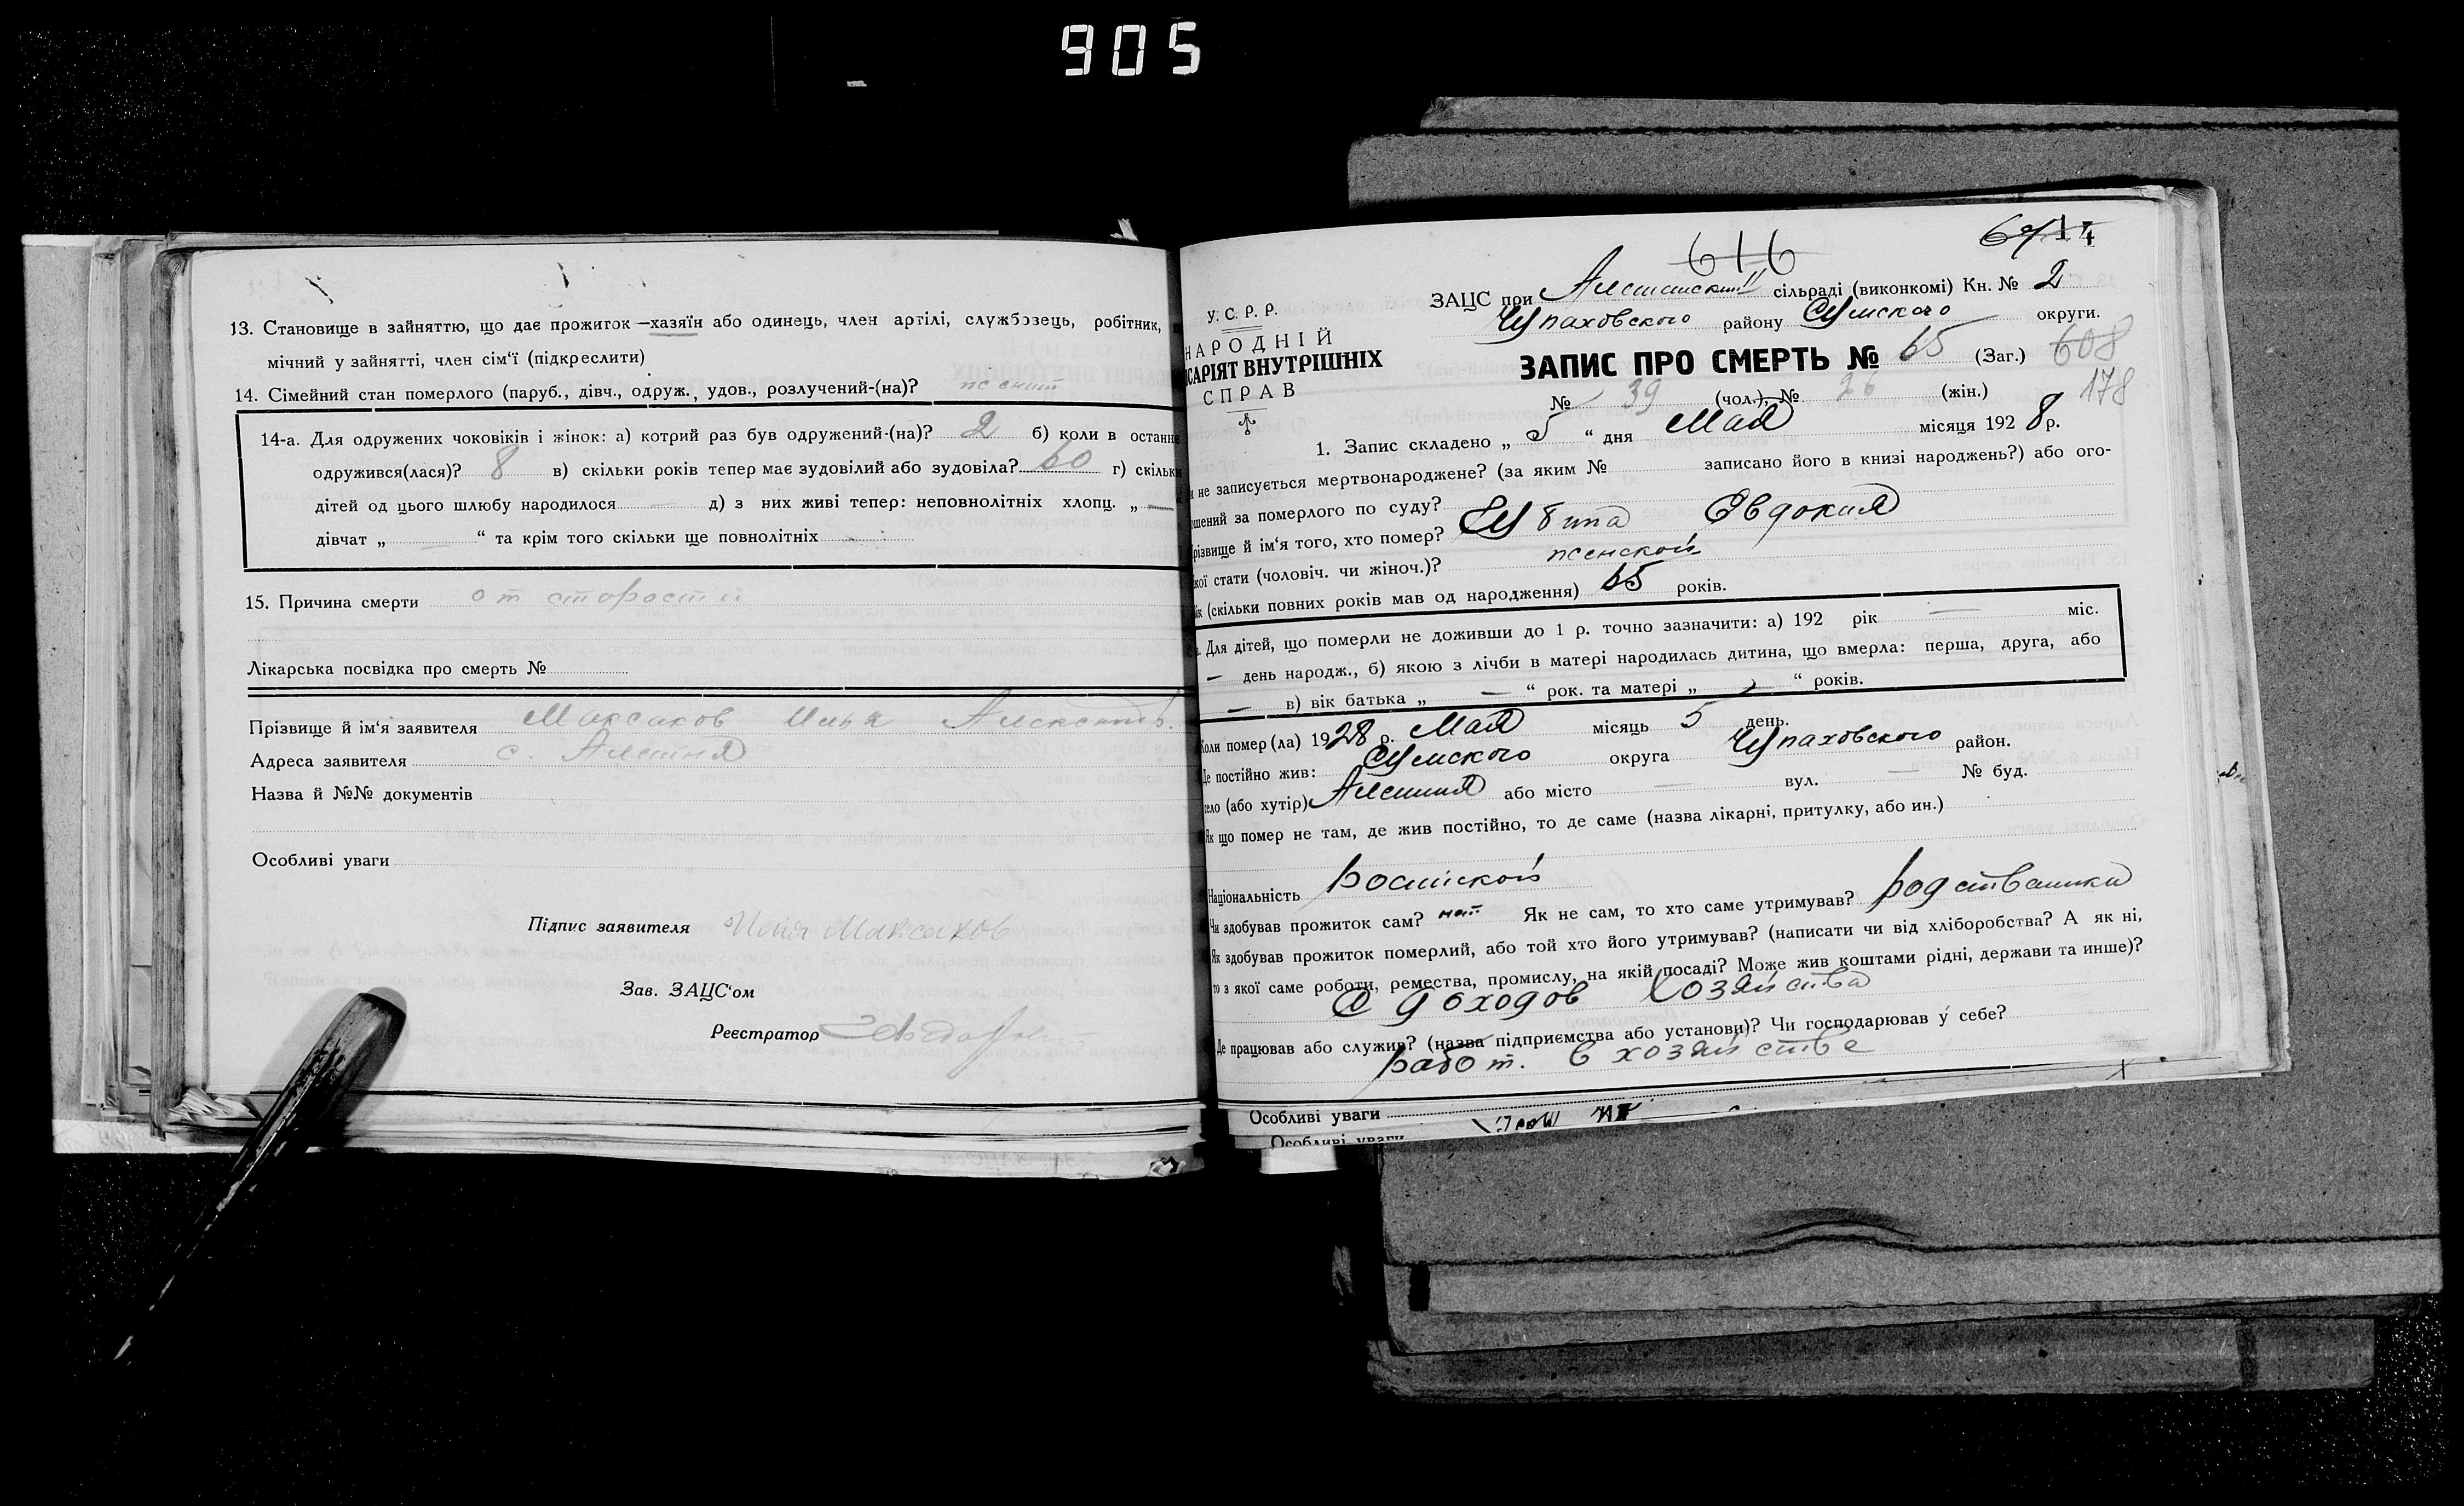 905
13. Становище в зайняттю, що дає прожиток—хазяїн або одинець, член артілі, службовець, робітник,
мічний у зайнятті, член сім'ї (підкреслити)
14. Сімейний стан померлого (паруб., дівч., одруж., удов., розлучений-(на)?
14-а. Для одружених чоковіків і жінок: а) котрий раз був одружений-(на)? 2 б) коли в останнє
одружився(лася)? 8 в) скільки років тепер має зудовілий або зудовіла? 60 г) скільки
дітей од цього шлюбу народилося — д) з них живі тепер: неповнолітніх хлопц. „ —
дівчат „ — “ та крім того скільки ще повнолітніх
15. Причина смерти от старости
Лікарська посвідка про смерть №
Прізвище й ім'я заявителя Максаков Илья Александр.
Адреса заявителя с. Алешня
Назва й №№ документів
Особливі уваги
Підпис заявителя Илия Максаков
Зав. ЗАЦС'ом
Реєстратор
616
У. С. Р. Р.
НАРОДНІЙ
САРІЯТ ВНУТРІШНІХ
СПРАВ
ЗАЦС при Алешанский сільраді (виконкомі) Кн. № 2
Чупаховского району Сумского округи.
ЗАПИС ПРО СМЕРТЬ № 65 (Заг.) 608
№ 39 (чол.), № 26 (жін.) 178
1. Запис складено „ 5 “ дня Мая місяця 1928 р.
и не записується мертвонароджене? (за яким № записано його в книзі народжень?) або ого-
ошений за померлого по суду?
різвище й ім'я того, хто помер? Шубина Евдокия
кої стати (чоловіч. чи жіноч.)? женской
ік (скільки повних років мав од народження) 65 років.
Для дітей, що померли не доживши до 1 р. точно зазначити: а) 192 рік — міс.
— день народж., б) якою з лічби в матері народилась дитина, що вмерла: перша, друга, або
— в) вік батька „ — “ рок. та матері „ “ років.
Коли помер(ла) 1928 р. Мая місяць 5 день.
Де постійно жив: Сумского округа Чупаховского район.
село (або хутір) Алешня або місто — вул. — № буд.
Як що помер не там, де жив постійно, то де саме (назва лікарні, притулку, або ин.)
Національність
Чи здобував прожиток сам? нет Як не сам, то хто саме утримував? родственики
Як здобував прожиток померлий, або той хто його утримував? (написати чи від хліборобства? А як ні,
то з якої саме роботи, ремества, промислу, на якій посаді? Може жив коштами рідні, держави та инше)?
С доходов хозяйства
Де працював або служив? (назва підприємства або установи)? Чи господарював у себе?
работ. в хозяйстве
Особливі уваги
Особливі уваги